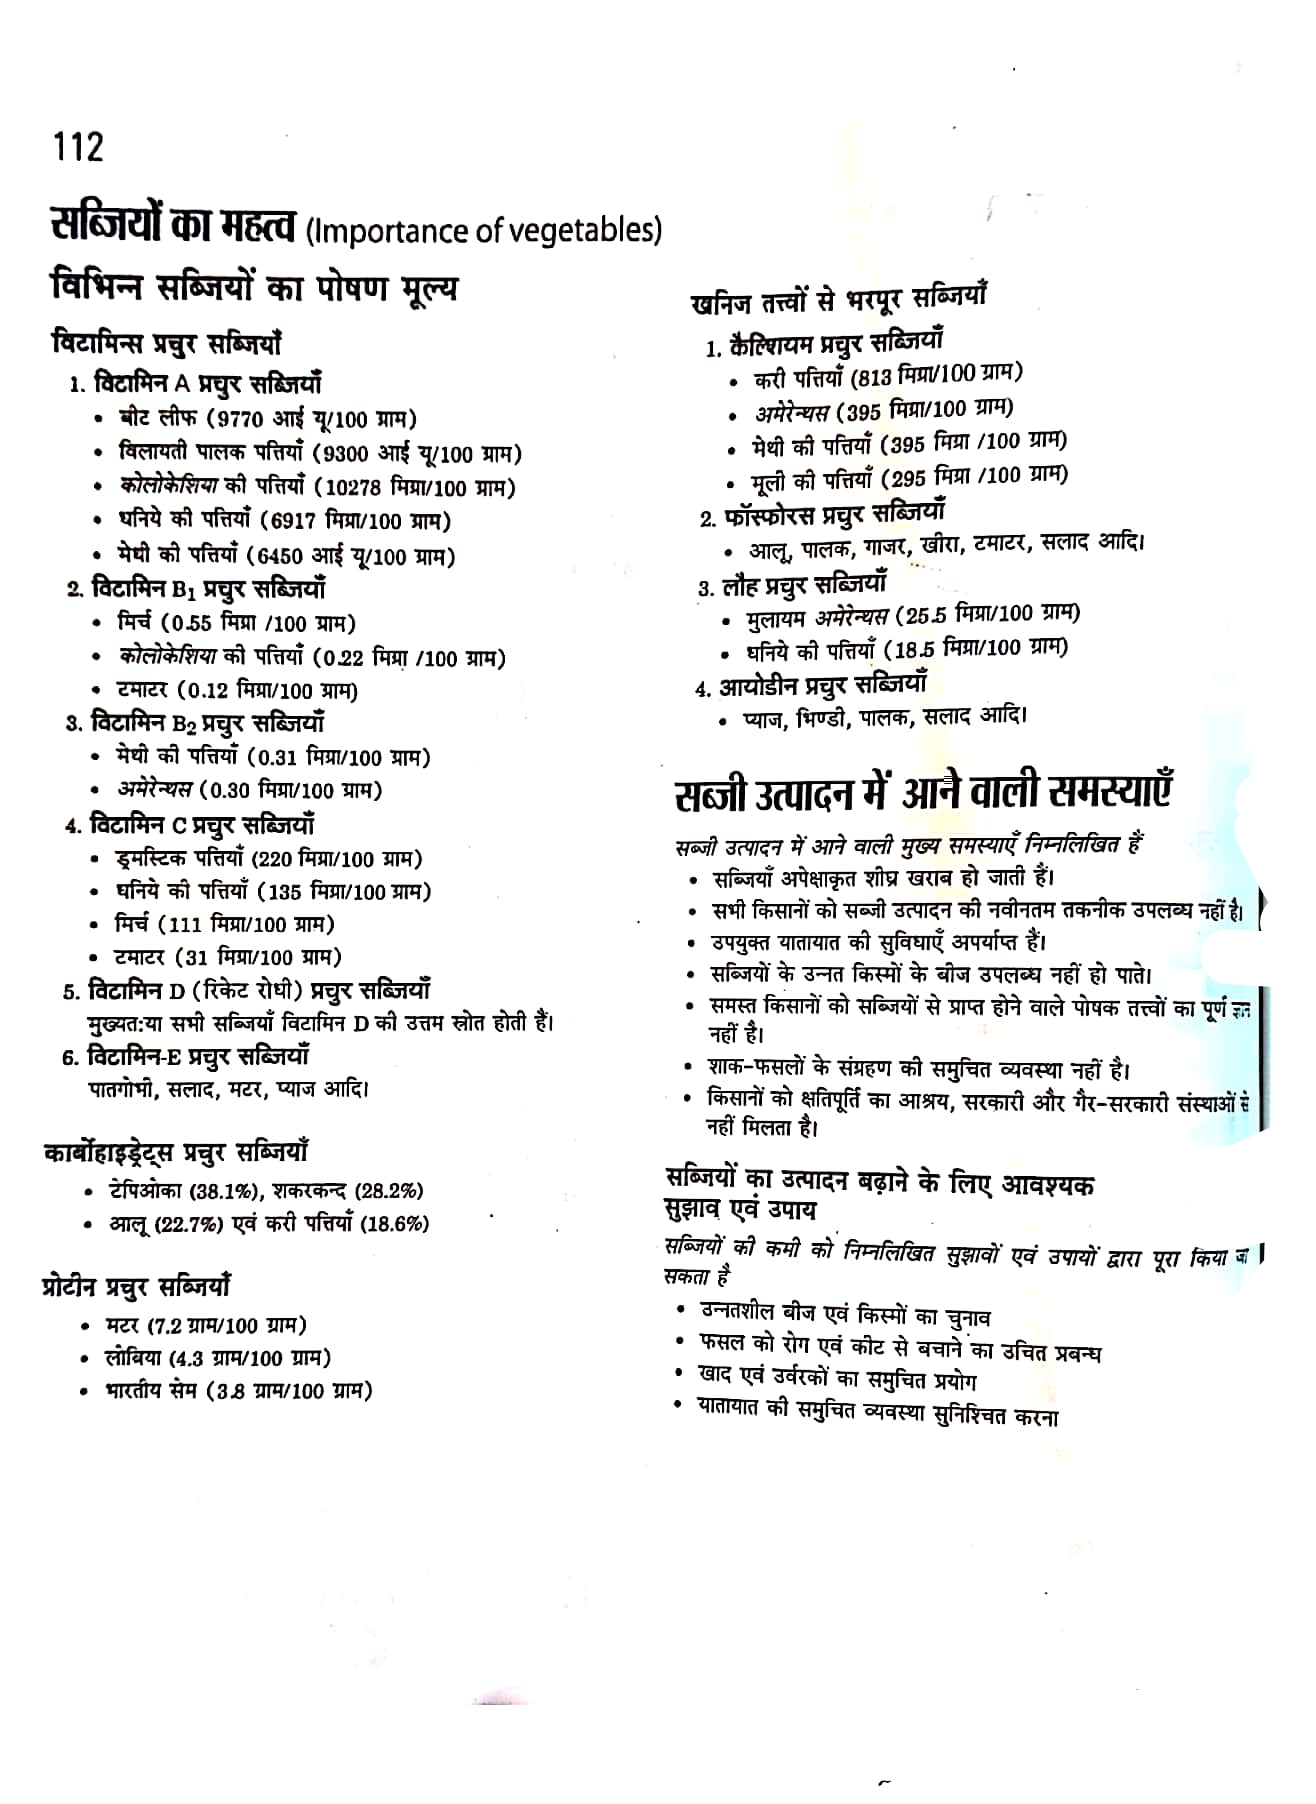 112
सब्जियों का महत्व (Importance of vegetables)
विभिन्न सब्जियों का पोषण मूल्य
विटामिन्स प्रचुर सब्जियाँ
1. विटामिन A प्रचुर सब्जियाँ
• बीट लीफ (9770 आई यू/100 ग्राम)
• विलायती पालक पत्तियाँ (9300 आई यू/100 ग्राम)
• कोलोकेशिया की पत्तियाँ (10278 मिग्रा/100 ग्राम)
• धनिये की पत्तियाँ (6917 मिग्रा/100 ग्राम)
• मेथी की पत्तियाँ (6450 आई यू/100 ग्राम)
2. विटामिन B₁ प्रचुर सब्जियाँ
• मिर्च (0.55 मिग्रा /100 ग्राम)
• कोलोकेशिया की पत्तियाँ (0.22 मिग्रा /100 ग्राम)
• टमाटर (0.12 मिग्रा/100 ग्राम)
3. विटामिन B₂ प्रचुर सब्जियाँ
• मेथी की पत्तियाँ (0.31 मिग्रा/100 ग्राम)
• अमेरेन्थस (0.30 मिग्रा/100 ग्राम)
4. विटामिन C प्रचुर सब्जियाँ
• ड्रमस्टिक पत्तियाँ (220 मिग्रा/100 ग्राम)
• धनिये की पत्तियाँ (135 मिग्रा/100 ग्राम)
• मिर्च (111 मिग्रा/100 ग्राम)
• टमाटर (31 मिग्रा/100 ग्राम)
5. विटामिन D (रिकेट रोधी) प्रचुर सब्जियाँ
मुख्यत:या सभी सब्जियाँ विटामिन D की उत्तम स्रोत होती हैं।
6. विटामिन-E प्रचुर सब्जियाँ
पातगोभी, सलाद, मटर, प्याज आदि।
कार्बोहाइड्रेट्स प्रचुर सब्जियाँ
• टेपिओका (38.1%), शकरकन्द (28.2%)
• आलू (22.7%) एवं करी पत्तियाँ (18.6%)
प्रोटीन प्रचुर सब्जियाँ
• मटर (7.2 ग्राम/100 ग्राम)
• लोबिया (4.3 ग्राम/100 ग्राम)
• भारतीय सेम (3.8 ग्राम/100 ग्राम)
खनिज तत्त्वों से भरपूर सब्जियाँ
1. कैल्शियम प्रचुर सब्जियाँ
• करी पत्तियाँ (813 मिग्रा/100 ग्राम)
• अमेरेन्थस (395 मिग्रा/100 ग्राम)
• मेथी की पत्तियाँ (395 मिग्रा /100 ग्राम)
• मूली की पत्तियाँ (295 मिग्रा /100 ग्राम)
2. फॉस्फोरस प्रचुर सब्जियाँ
• आलू, पालक, गाजर, खीरा, टमाटर, सलाद आदि।
3. लौह प्रचुर सब्जियाँ
• मुलायम अमेरेन्थस (25.5 मिग्रा/100 ग्राम)
• धनिये की पत्तियाँ (18.5 मिग्रा/100 ग्राम)
4. आयोडीन प्रचुर सब्जियाँ
• प्याज, भिण्डी, पालक, सलाद आदि।
सब्जी उत्पादन में आने वाली समस्याएँ
सब्जी उत्पादन में आने वाली मुख्य समस्याएँ निम्नलिखित हैं
• सब्जियाँ अपेक्षाकृत शीघ्र खराब हो जाती हैं।
• सभी किसानों को सब्जी उत्पादन की नवीनतम तकनीक उपलब्ध नहीं है।
• उपयुक्त यातायात की सुविधाएँ अपर्याप्त हैं।
• सब्जियों के उन्नत किस्मों के बीज उपलब्ध नहीं हो पाते।
• समस्त किसानों को सब्जियों से प्राप्त होने वाले पोषक तत्त्वों का पूर्ण
नहीं है।
• शाक-फसलों के संग्रहण की समुचित व्यवस्था नहीं है।
• किसानों को क्षतिपूर्ति का आश्रय, सरकारी और गैर-सरकारी संस्थाओं से
नहीं मिलता है।
सब्जियों का उत्पादन बढ़ाने के लिए आवश्यक
सुझाव एवं उपाय
सब्जियों की कमी को निम्नलिखित सुझावों एवं उपायों द्वारा पूरा किया जा
सकता है
• उन्नतशील बीज एवं किस्मों का चुनाव
• फसल को रोग एवं कीट से बचाने का उचित प्रबन्ध
• खाद एवं उर्वरकों का समुचित प्रयोग
• यातायात की समुचित व्यवस्था सुनिश्चित करना